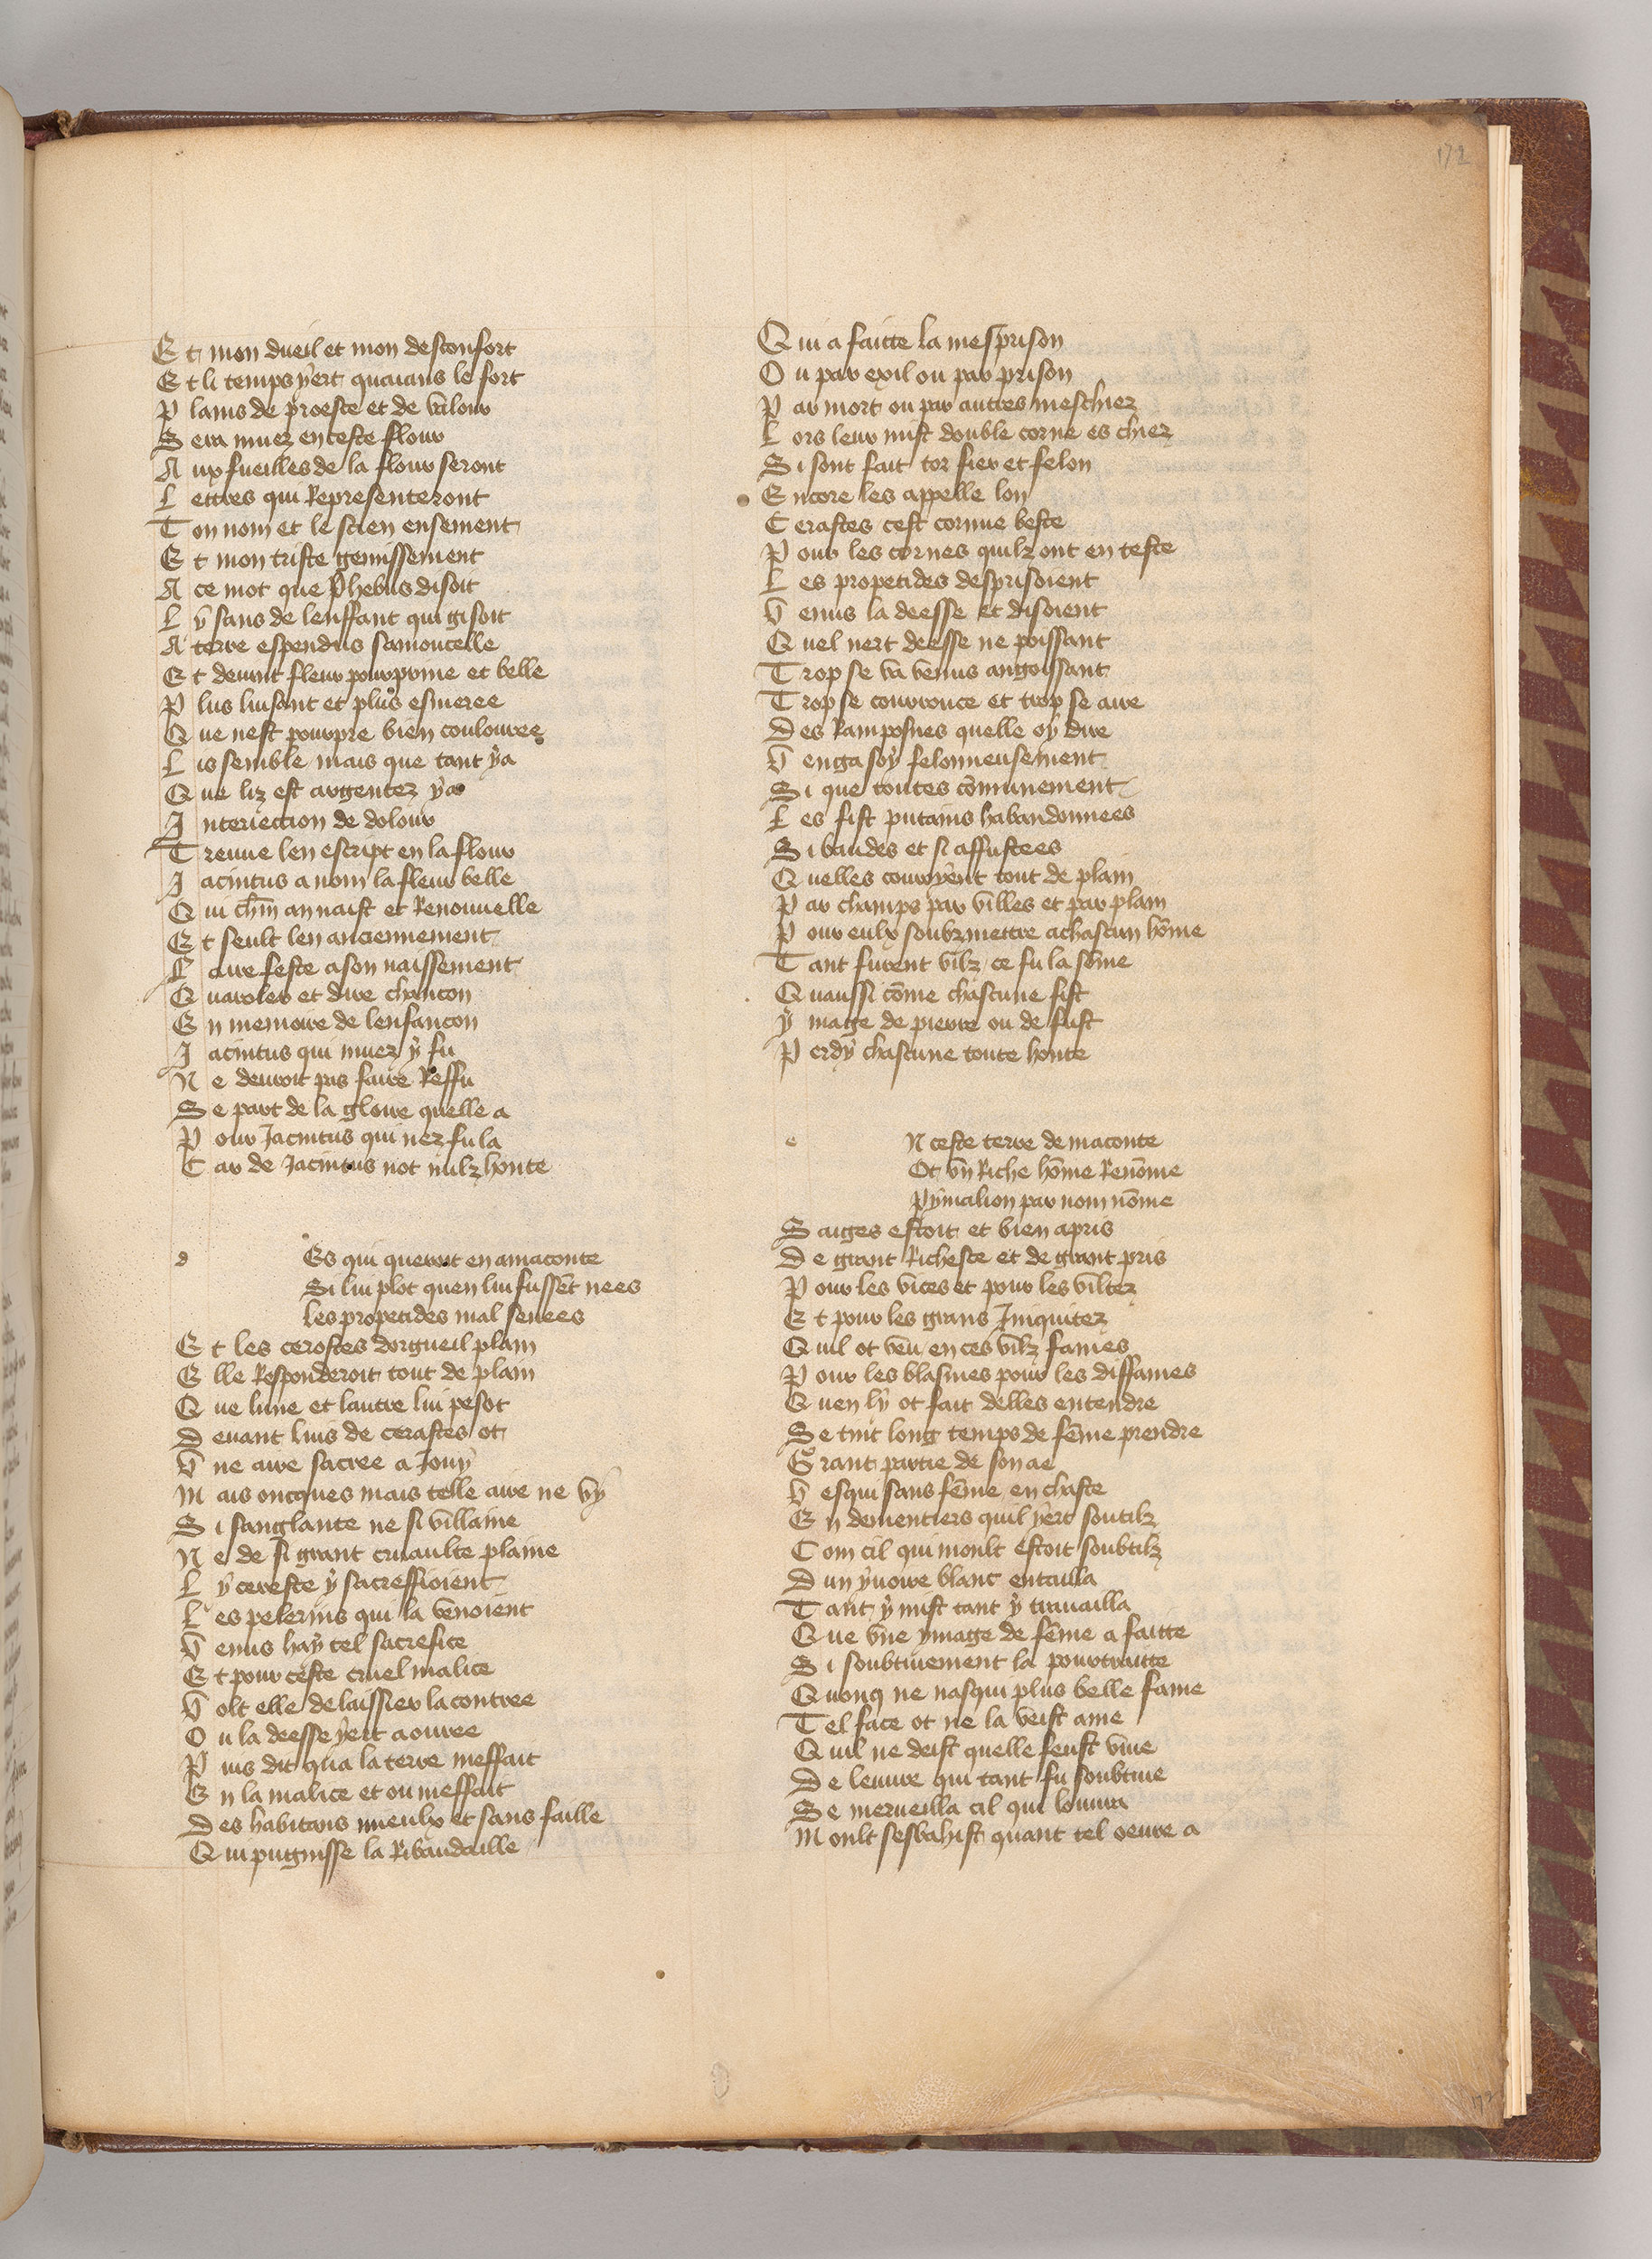 172
Et mon dueil et mon desconfort
Et li temps yert quaians le fort
Plains de proeste et de valour
Sera muez en ceste flour
Aux fueilles de la flour seront
Lettres qui Representeront
Ton nom et le scien ensement
Et mon triste gemissement
A ce mot que Phebus disoit
Ly sans de lenffant qui gisoit
A terre espendus samoncelle
Et devint fleur pourprine et belle
Plus luisant et plus esmeree
Que nest pourpre bien coulouree
Lis semble mais que tant ya
Que liz est argentez ya
Interiection de dolour
Treuue len escript en la flour
Jacintus a nom la fleur belle
Qui chm an naist et Renouuelle
Et seult len anciennement
Faire feste a son naissement
Quaroler et dire chancon
En memoire de lenfancon
Jacintus qui muez y fu
Ne deuroit pas faire Reffu
Se part de la gloire quelle a
Pour Jacintus qui nez fu la
Car de Jacintus not nulz honte
d Es qui querroit en amaconte
Si lui plot quen lui fussēt nees
Les propetides mal senees
Et les cerostes dorgueil plain
Elle Responderoit tout de plain
Que lune et lautre lui pesot
Deuant luis de cerastes ot
Vne aire sacree a Jouy
Mais oncques mais telle aire ne vy
Si sanglante ne si villaine
Ne de si grant cruaulte plaine
Ly cereste y sacreffioient
Les pelerins qui la venoient
Venus hay tel sacrefice
Et pour ceste cruel malice
Volt elle delaissier la contree
Ou la deesse yert aouree
Puis dit qua la terre meffait
En la malice et ou meffait
Des habitans mieulx et sans faille
Qui pugnisse la Ribaudaille
Qui a faitte la mesprison
Ou par exil ou par prison
Par mort ou par autres meschiez
Lors leur mist double corne es chiez
Si sont fait tor fier et felon
Encore les appelle lon
Cerastes cest cornue beste
Pour les cornes quilz ont en teste
Les propetides desprisoient
Venus la deesse et disoient
Quel nert deesse ne poissant
Trop se va venus angoissant
Trop se courrouce et trop se aire
Des Ramposnes quelle oy dire
Venga soy felonneusement
Si que toutes cōmunement
Les fist putains habandonnees
Si baudes et si affustees
Quelles couroyent tout de plain
Par champs par villes et par plain
Pour eulx soubzmettre achascun hōme
Tant furent vilz ce fu la sōme
Quaussi cōme chascune fist
Ymage de pierre ou de fust
Perdy chascune toute honte
e N ceste terre de maconte
Ot vn Riche hōme Renōme
Pymalion par nom nōme
Saiges estoit et bien apris
De grant Richeste et de grant pris
Pour les vices et pour les viltez
Et pour les grans Iniquitez
Quil ot veu en ces vilz fames
Pour les blasmes pour les diffames
Quen ly ot fait delles entendre
Se tint long temps de fēme prendre
Grant partie de son ae
Vesqui sans fēme en chaste
En dementiers quil yert soutilz
Com cil qui moult estoit soubtilz
Dun yuoire blanc entailla
Tant y mist tant y trauailla
Que vne ymage de fēme a faitte
Si soubtiuement la pourtraitte
Quonq ne nasqui plus belle fame
Tel face ot ne la veist ame
Quil ne deist quelle feust viue
De leuure qui tant fu soubtiue
Se merueilla cil qui louura
Moult sesbahist quant tel oeuure a
172